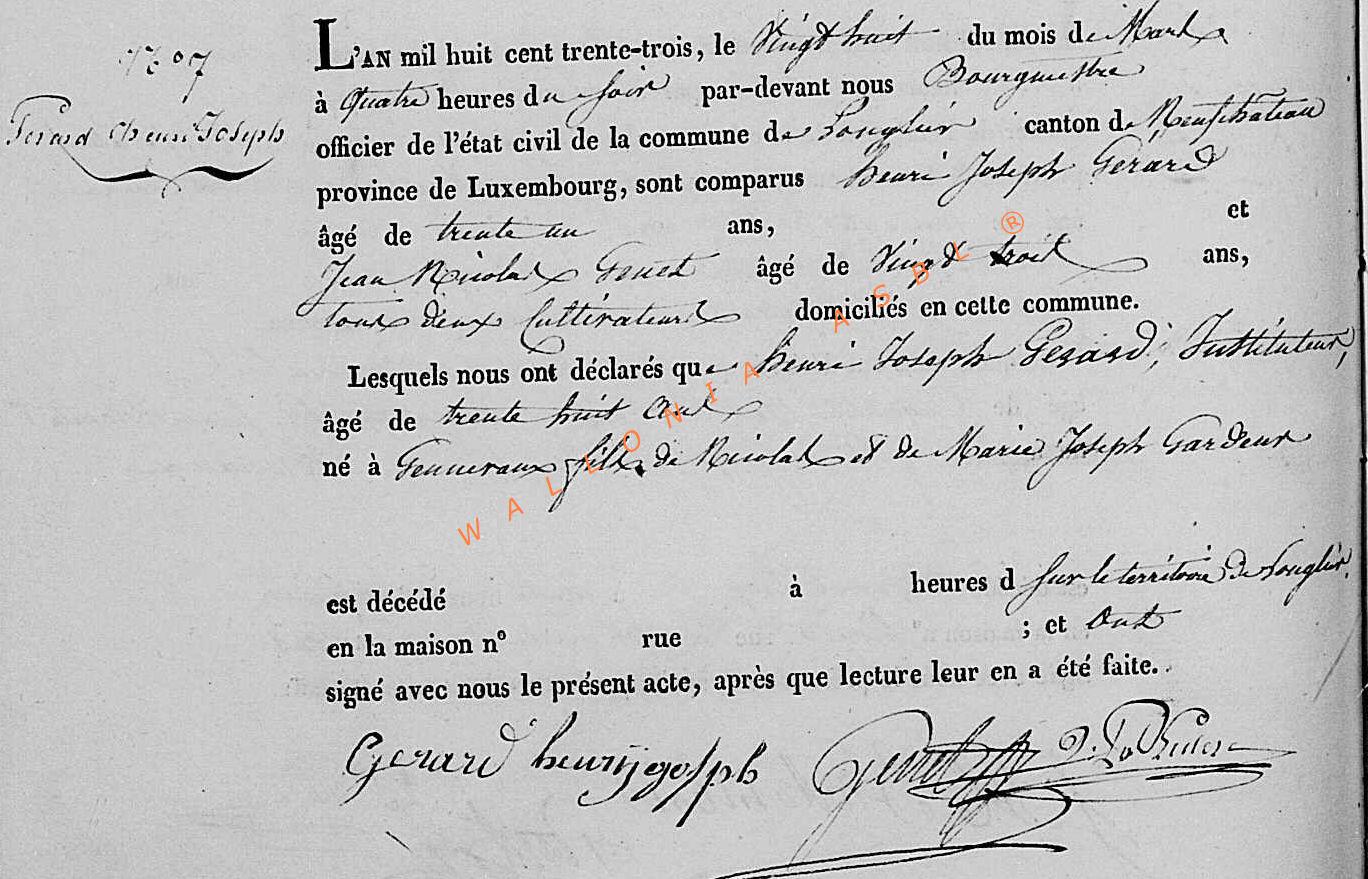 N° 7
Gerard henri Joseph
L'AN mil huit cent trente-trois, le Vingt huit du mois de Mars
à Quatre heures du soir par-devant nous Bourgmestre
officier de l'état civil de la commune de Longlier canton de Neufchateau
province de Luxembourg, sont comparus henri Joseph Gérard
âgé de trente un ans, et
Jean Nicolas Genet âgé de Vingt trois ans,
tous deux Cultivateurs domiciliés en cette commune.
Lesquels nous ont déclarés que henri Joseph Gerard, Instituteur,
âgé de trente huit ans
né à Gennevaux fils de Nicolas et de Marie Joseph Gardeur
est décédé à heures d sur le territoire de Longlier.
en la maison n° rue ; et Ont
signé avec nous le présent acte, après que lecture leur en a été faite.
Gerard henrij josph Genet
WALLONIA ASBL ®